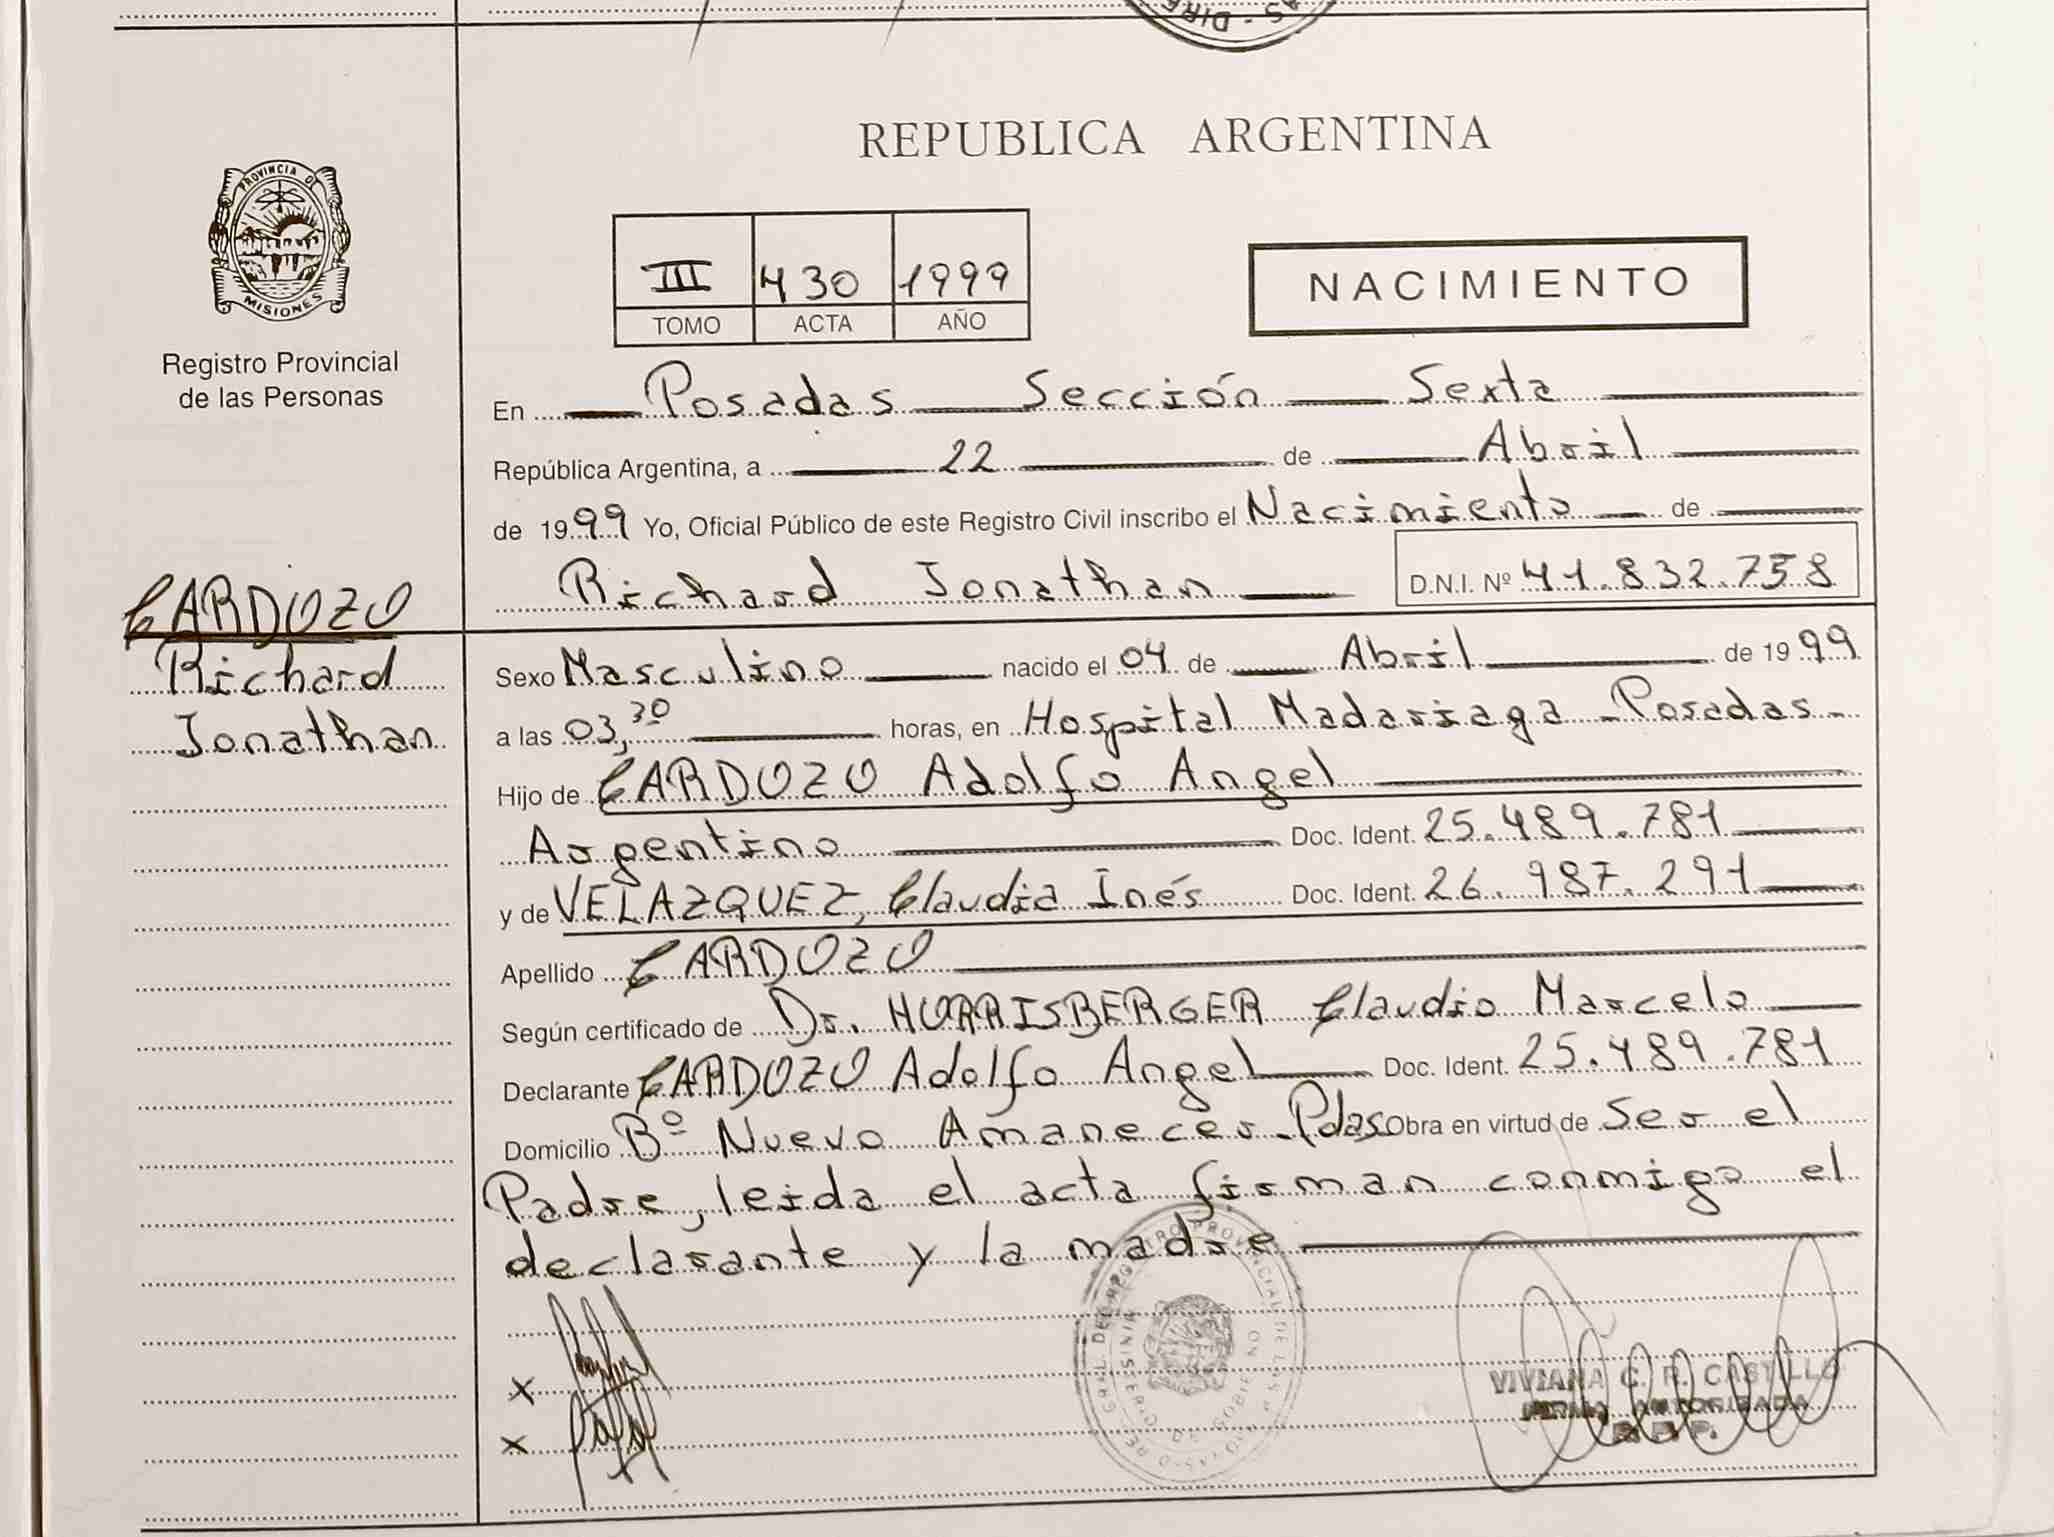 AS - DIRE
REPUBLICA ARGENTINA
PROVINCIA DE
MISIONES
Registro Provincial
de las Personas
III 430 1999
TOMO ACTA AÑO
NACIMIENTO
En Posadas Sección Sexta
República Argentina, a 22 de Abril
de 1999 Yo, Oficial Público de este Registro Civil inscribo el Nacimiento de
Richard Jonathan D.N.I. Nº 41.832.758
CARDOZO
Richard
Jonathan
Sexo Masculino nacido el 04 de Abril de 1999
a las 03,30 horas, en Hospital Madariaga - Posadas -
Hijo de CARDOZO Adolfo Angel
Argentino Doc. Ident. 25.489.781
y de VELAZQUEZ, Claudia Inés Doc. Ident. 26.987.291
Apellido CARDOZO
Según certificado de Dr. HURRISBERGER Claudio Marcelo
Declarante CARDOZO Adolfo Angel Doc. Ident. 25.489.781
Domicilio Bº Nuevo Amanecer - Pdas Obra en virtud de Ser el
Padre, leida el acta firman conmigo el
declarante y la madre
x
x
VIVIANA C. R. CASTILLO
FIRMA AUTORIZADA
R.P.P.